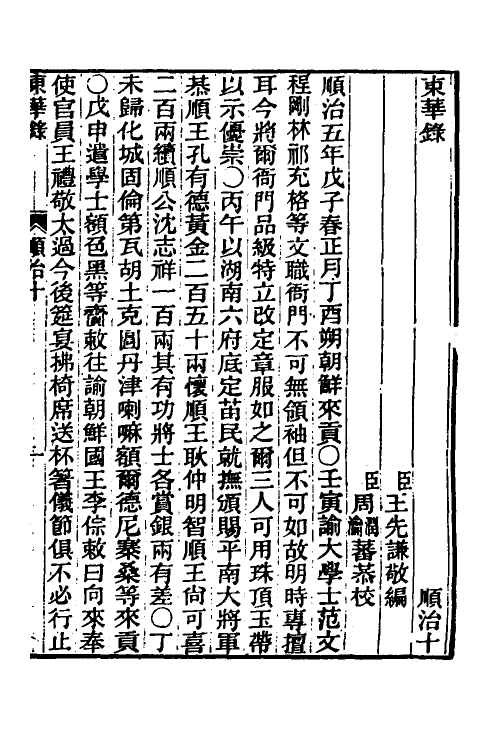 東華錄　順治十
臣王先謙敬編
臣周潤蕃周瀹蕃恭校
順治五年戊子春正月丁酉朔朝鮮來貢〇壬寅諭大學士范文
程剛林祁充格等文職衙門不可無領袖但不可如故明時專擅
耳今將爾衙門品級特立改定章服如之爾三人可用珠頂玉帶
以示優崇〇丙午以湖南六府底定苗民就撫頒賜平南大將軍
恭順王孔有德黃金二百五十兩懷順王耿仲明智順王尚可喜
二百兩續順公沈志祥一百兩其有功將士各賞銀兩有差〇丁
未歸化城固倫第瓦胡土克圖丹津喇嘛額爾德尼寨桑等來貢
〇戊申遣學士額色黑等齎敕往諭朝鮮國王李倧敕曰向來奉
使官員王禮敬太過今後筵宴拂椅席送杯箸儀節俱不必行止
東華錄　順治十